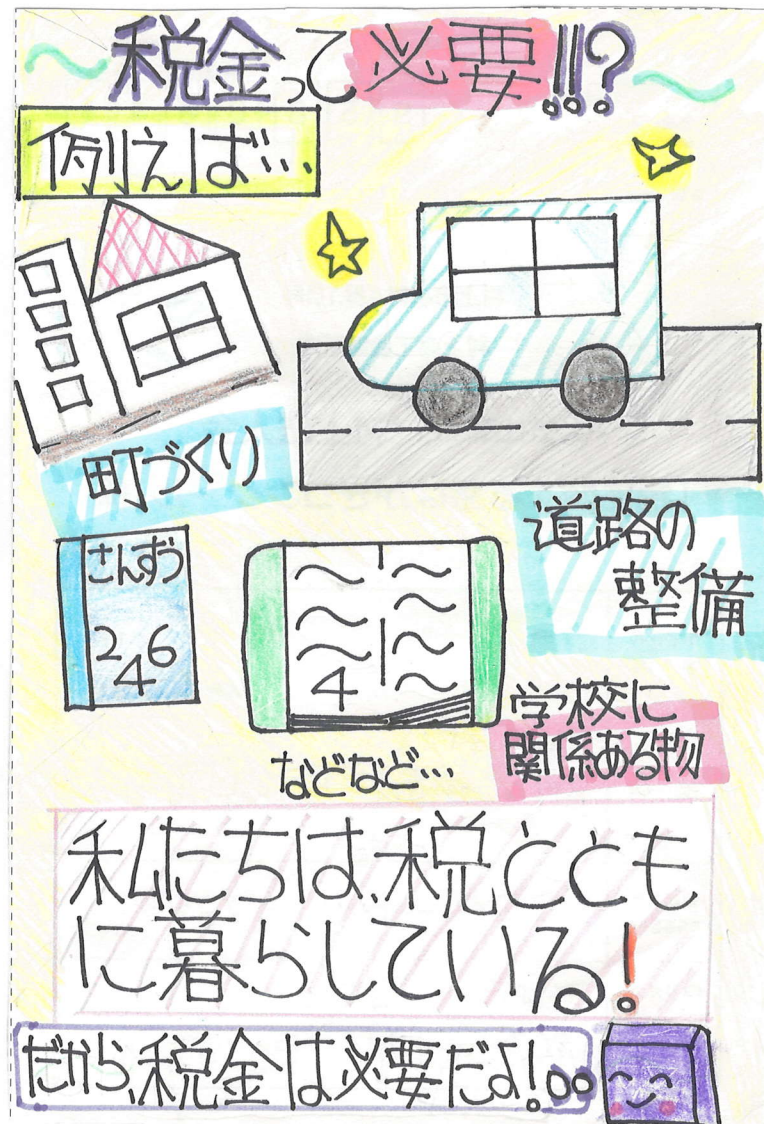 ～税金って必要!!!?～
例えば…
町づくり
道路の
整備
さんすう
246
4
学校に
関係ある物
などなど…
私たちは、税ととも
に暮らしている!
だから、税金は必要だよ!